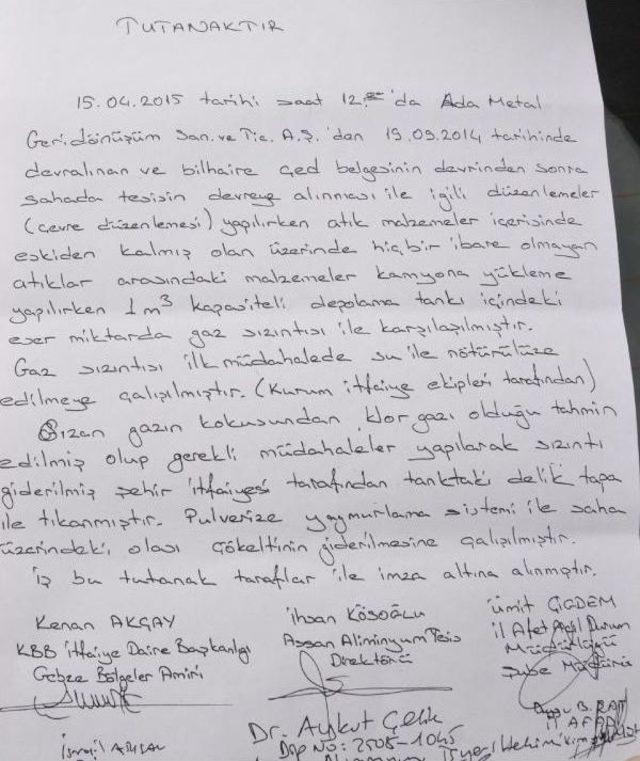 TUTANAKTIR
15.04.2015 tarihi saat 12 'da Ada Metal
Geridönüşüm San. ve Tic. A.Ş.'dan 19.09.2014 tarihinde
devralınan ve bilhaire Çed belgesinin devrinden sonra
sahada tesisin devreye alınması ile ilgili düzenlemeler
(çevre düzenlemesi) yapılırken atık malzemeler içerisinde
eskiden kalmış olan üzerinde hiçbir ibare olmayan
atıklar arasındaki malzemeler kamyona yükleme
yapılırken 1 m³ kapasiteli depolama tankı içindeki
eser miktarda gaz sızıntısı ile karşılaşılmıştır.
Gaz sızıntısı ilk müdahalede su ile nötürülüze
edilmeye çalışılmıştır. (Kurum itfaiye ekipleri tarafından)
Sızan gazın kokusundan klor gazı olduğu tahmin
edilmiş olup gerekli müdahaleler yapılarak sızıntı
giderilmiş şehir itfaiyesi tarafından tanktaki delik tapa
ile tıkanmıştır. Pulverize yağmurlama sistemi ile saha
üzerindeki olası çökeltinin giderilmesine çalışılmıştır.
İş bu tutanak taraflar ile imza altına alınmıştır.
Kenan AKÇAY
KBB İtfaiye Daire Başkanlığı
Gebze Bölgeler Amiri
İhsan KÖSOĞLU
Assan Aliminyum Tesis
Direktörü
Ümit ÇİĞDEM
İl Afet Acil Durum
Müdürlüğü
Şube Müdürü
İl AFAD
Dr. Aykut Çelik
Dip No: 2505-1045
İsmail
İşyeri Hekimi